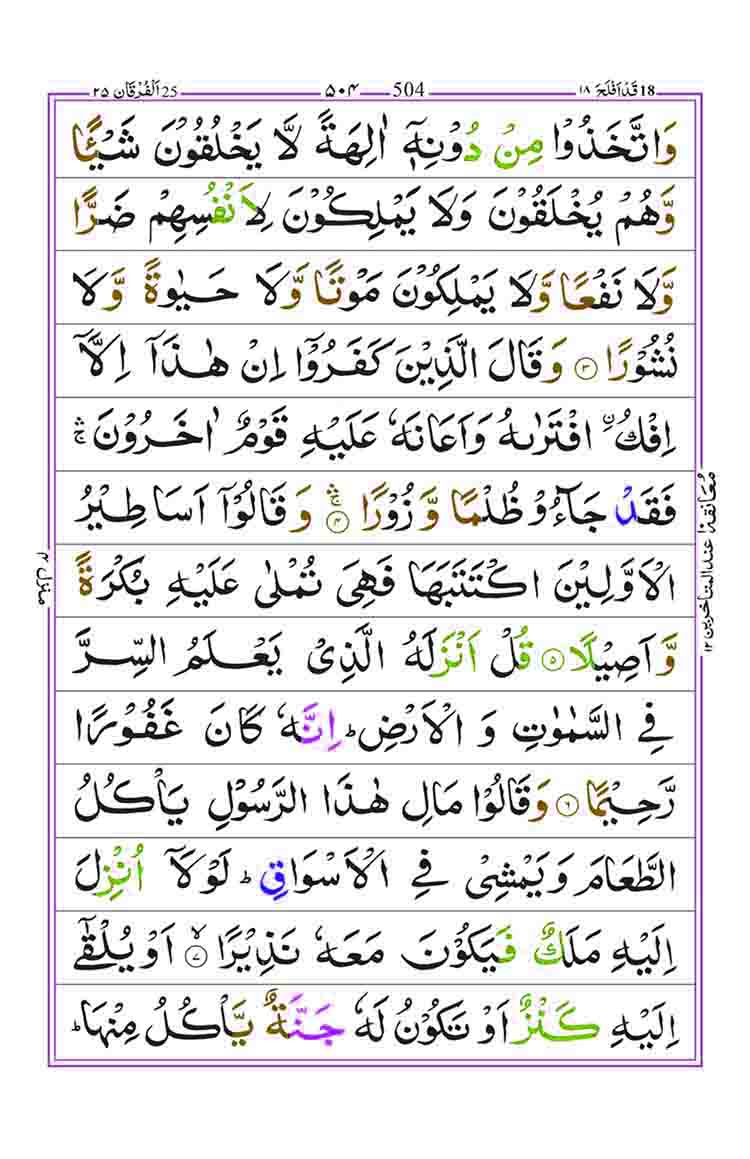 18 قَدْ اَفْلَحَ ١٨
504 ۵۰۴
25 اَلْفُرْقَان ٢٥
وَاتَّخَذُوْا مِنْ دُوْنِهٖۤ اٰلِهَةً لَّا يَخْلُقُوْنَ شَيْـًٔا
وَّهُمْ يُخْلَقُوْنَ وَلَا يَمْلِكُوْنَ لِاَنْفُسِهِمْ ضَرًّا
وَّلَا نَفْعًا وَّلَا يَمْلِكُوْنَ مَوْتًا وَّلَا حَيٰوةً وَّلَا
نُشُوْرًا ۝٣ وَقَالَ الَّذِيْنَ كَفَرُوْۤا اِنْ هٰذَاۤ اِلَّاۤ
اِفْكُ ۨ افْتَرٰىهُ وَاَعَانَهٗ عَلَيْهِ قَوْمٌ اٰخَرُوْنَ ۛۚ
فَقَدْ جَآءُوْ ظُلْمًا وَّ زُوْرًا ۛۚ ۝٤ وَقَالُوْۤا اَسَاطِيْرُ
الْاَوَّلِيْنَ اكْتَتَبَهَا فَهِىَ تُمْلٰى عَلَيْهِ بُكْرَةً
وَّاَصِيْلًا ۝٥ قُلْ اَنْزَلَهُ الَّذِىْ يَعْلَمُ السِّرَّ
فِى السَّمٰوٰتِ وَ الْاَرْضِ ؕ اِنَّهٗ كَانَ غَفُوْرًا
رَّحِيْمًا ۝٦ وَقَالُوْا مَالِ هٰذَا الرَّسُوْلِ يَاْكُلُ
الطَّعَامَ وَيَمْشِىْ فِى الْاَسْوَاقِ ؕ لَوْلَاۤ اُنْزِلَ
اِلَيْهِ مَلَكٌ فَيَكُوْنَ مَعَهٗ نَذِيْرًا ۙ ۝٧ اَوْ يُلْقٰۤى
اِلَيْهِ كَنْزٌ اَوْ تَكُوْنُ لَهٗ جَنَّةٌ يَّاْكُلُ مِنْهَا ؕ
معانقة ۱۰ عند المتاخرين ١٢
منزل ۴